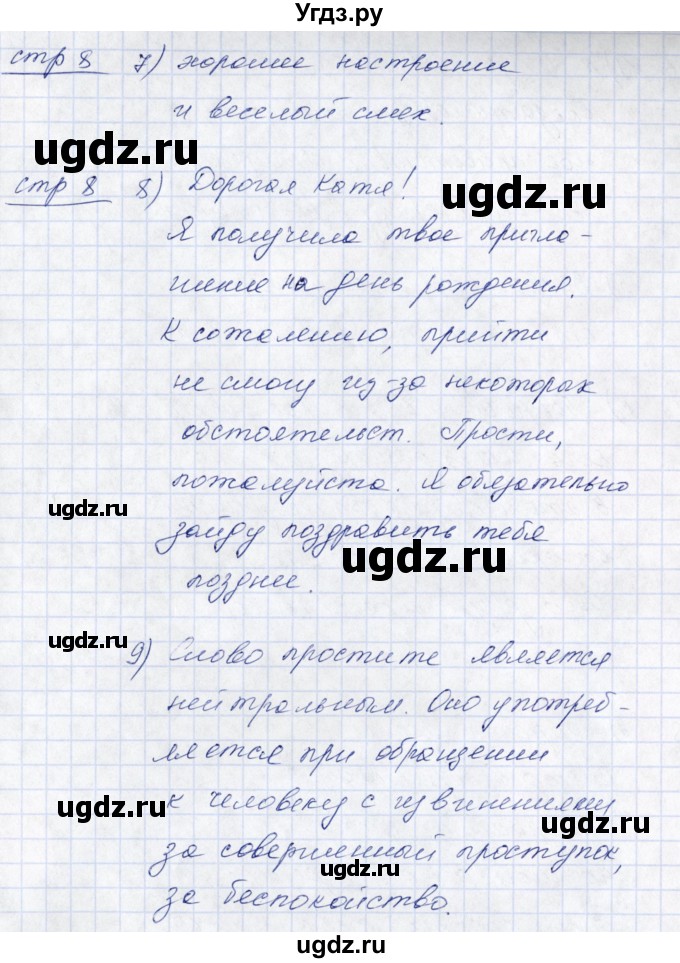 Угдз.ру
стр 8 7) хорошее настроение
и веселый смех.
ugdz.ru
ugdz.ru
стр 8 8) Дорогая Катя!
Я получила твое пригла-
шение на день рождения.
К сожалению, прийти
не смогу из-за некоторых
обстоятельст. Прости,
пожалуйста. Я обязательно
ugdz.ru
зайду поздравить тебя
ugdz.ru
позднее.
ugdz.ru
9) Слово простите является
нейтральным. Оно употреб-
ляется при обращении
к человеку с извинениями
ugdz.ru
ugdz.ru
за совершенный проступок,
за беспокойство.
ugdz.ru